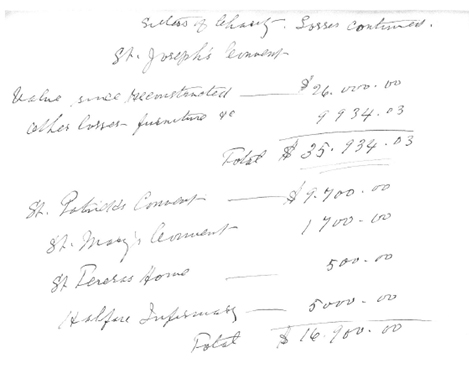 Sisters of Charity. Losses continued.
St. Joseph's Convent
Value since reconstructed — $26.000.00
other losses - furniture &c 9934.03
Total $35.934.03
St. Patrick's Convent — $9.700.00
St. Mary's Convent 1700.00
St Teresas Home — 500.00
Halifax Infirmary — 5000.00
Total $16.900.00